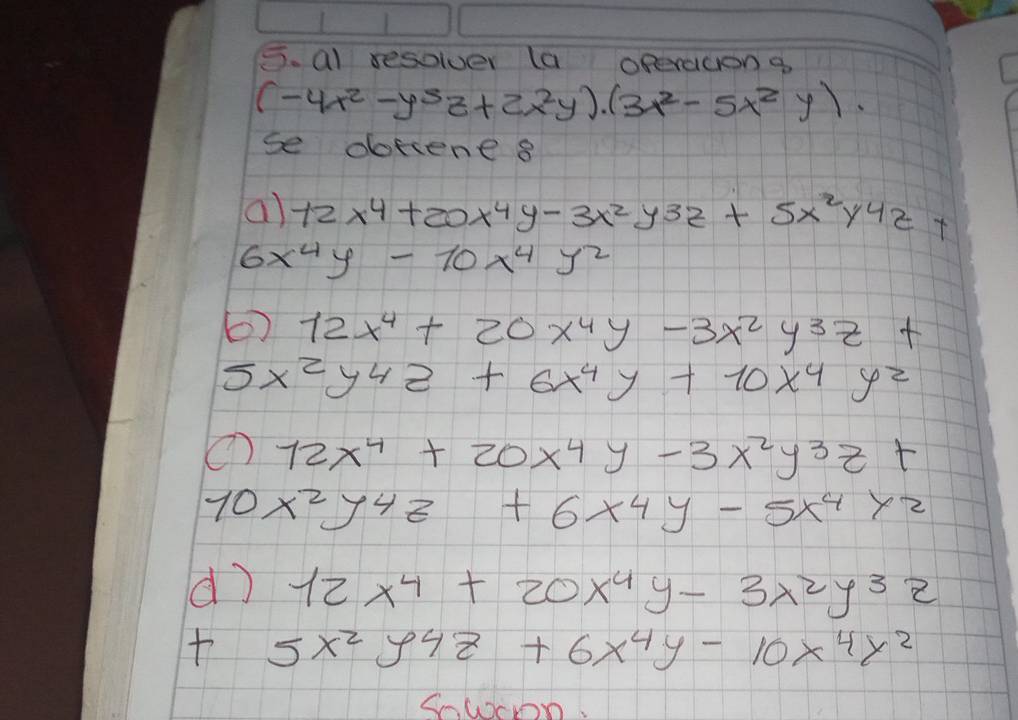 5. al resolver la operacion:
(-4x² - y³z + 2x²y).(3x² - 5x² y).
se obtiene:
a) -12x⁴ + 20x⁴y - 3x² y3z + 5x²y4z +
6x⁴y - 10x⁴ y²
b) 12x⁴ + 20x⁴y - 3x² y³z +
5x²y4z + 6x⁴y + 10x⁴ y²
c) 12x⁴ + 20x⁴y - 3x²y³z +
10x²y4z + 6x4y - 5x⁴ y²
d) 12x⁴ + 20x⁴y - 3x²y³z
+ 5x² y4z + 6x⁴y - 10x⁴y²
Solucion.